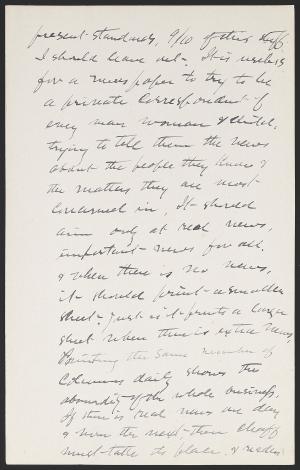 present standards, 9/10 of this stuff
I should leave out. It is useless
for a newspaper to try to be
a private correspondent of
every man woman & child,
trying to tell them the news
about the people they know &
the matters they are most
concerned in. It should
aim only at real news,
important news for all,
& when there is no news,
it should print a smaller
sheet - just as it prints a larger
sheet when there is extra news,
Printing the same number of
columns daily shows the
absurdity of the whole business.
If there is real news one day
& none the next - then
must take its place, & readers